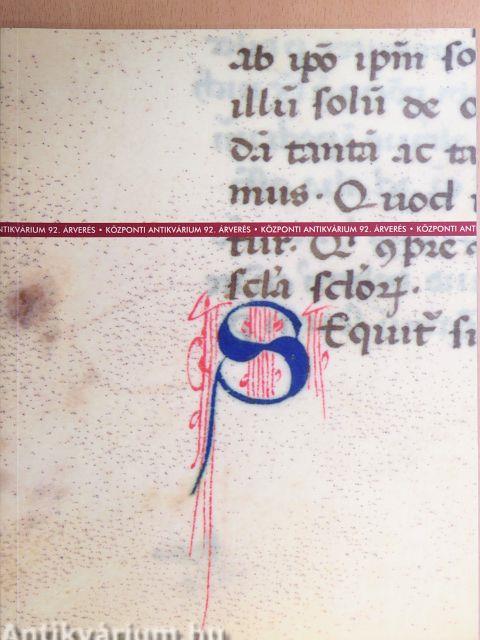 ab ip̄o ip̄m so
illū solū de
dā tantā ac ta
mus. Quod
NTIKVÁRIUM 92. ÁRVERÉS • KÖZPONTI ANTIKVÁRIUM 92. ÁRVERÉS • KÖZPONTI ANTIKVÁRIUM 92. ÁRVERÉS • KÖZPONTI ANT
tur. Qr̄ ꝯpre
scl'a scloꝝ.
S Equit᷑ si
Antikvárium.hu